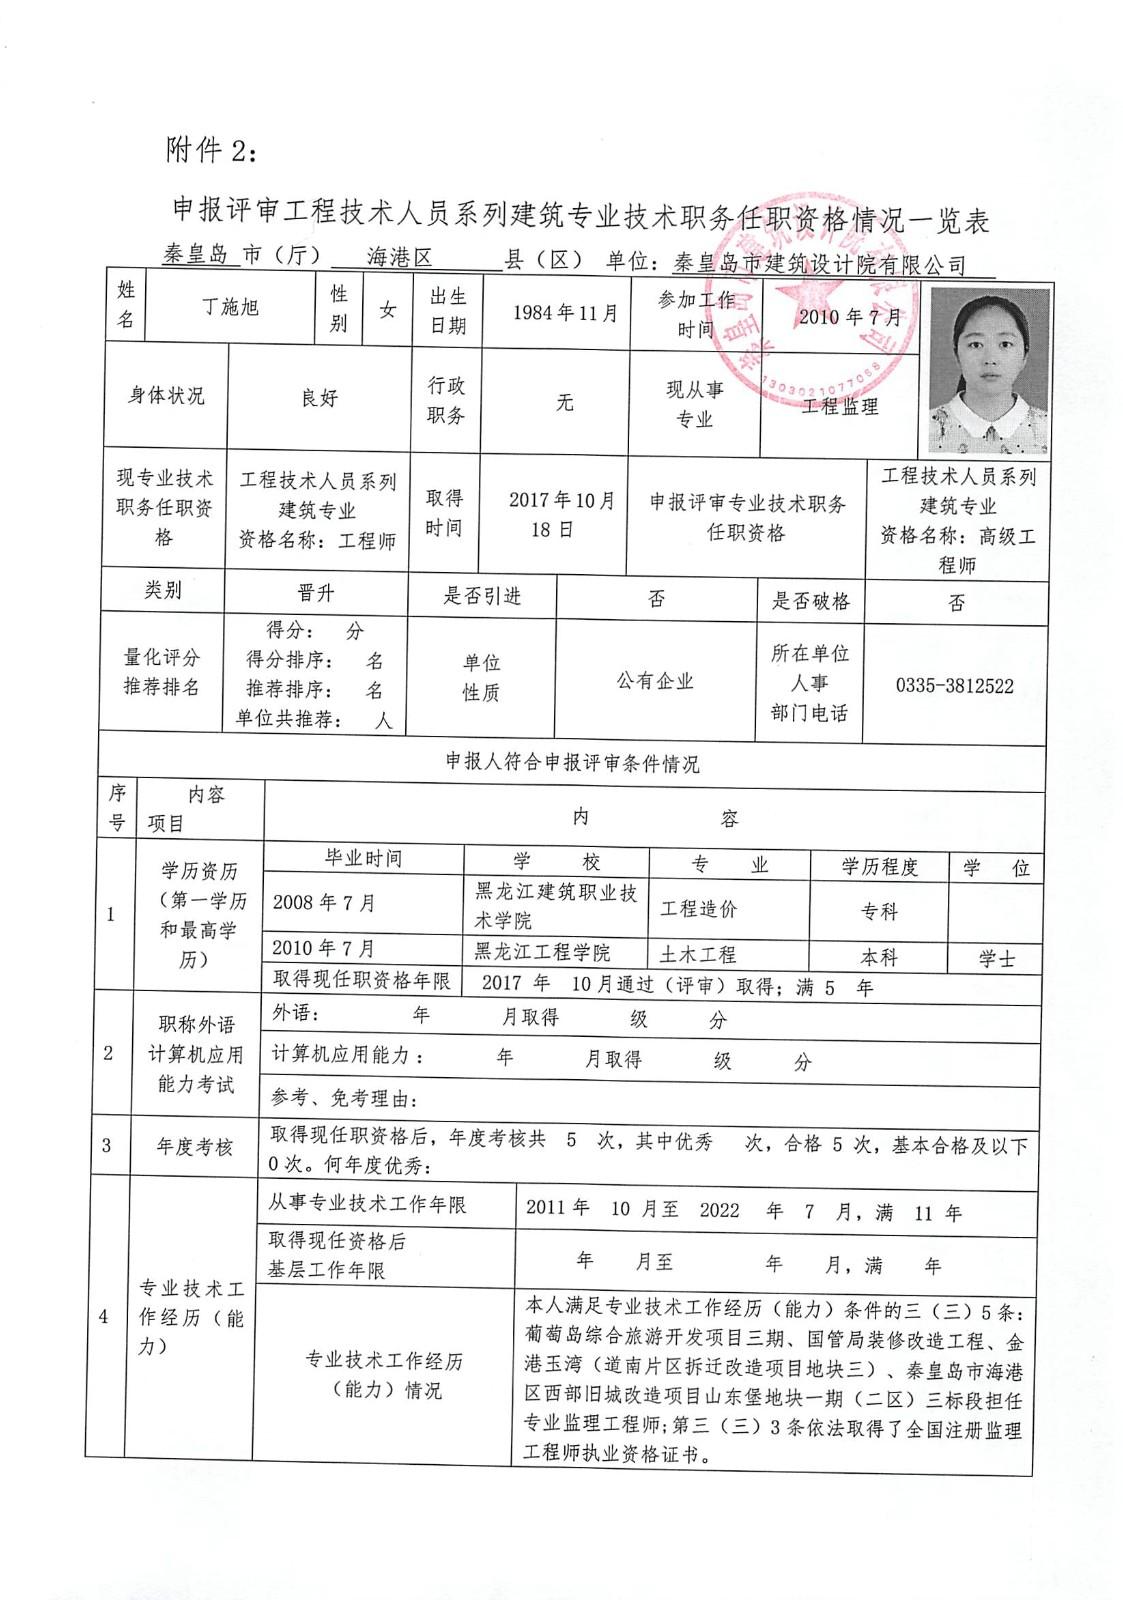 附件2：
申报评审工程技术人员系列建筑专业技术职务任职资格情况一览表
秦皇岛 市（厅） 海港区 县（区） 单位：秦皇岛市建筑设计院有限公司
姓名 丁施旭 性别 女 出生日期 1984年11月 参加工作时间 2010年7月
1303021077068
身体状况 良好 行政职务 无 现从事专业 工程监理
现专业技术职务任职资格 工程技术人员系列建筑专业 资格名称：工程师 取得时间 2017年10月18日 申报评审专业技术职务任职资格 工程技术人员系列建筑专业 资格名称：高级工程师
类别 晋升 是否引进 否 是否破格 否
量化评分推荐排名 得分： 分 得分排序： 名 推荐排序： 名 单位共推荐： 人 单位性质 公有企业 所在单位人事部门电话 0335-3812522
申报人符合申报评审条件情况
序号 内容 项目 内 容
1 学历资历（第一学历和最高学历） 毕业时间 学 校 专 业 学历程度 学 位
2008年7月 黑龙江建筑职业技术学院 工程造价 专科
2010年7月 黑龙江工程学院 土木工程 本科 学士
取得现任职资格年限 2017 年 10月通过（评审）取得；满 5 年
2 职称外语计算机应用能力考试 外语： 年 月取得 级 分
计算机应用能力： 年 月取得 级 分
参考、免考理由：
3 年度考核 取得现任职资格后，年度考核共 5 次，其中优秀 次，合格 5 次，基本合格及以下
0次。何年度优秀：
4 专业技术工作经历（能力） 从事专业技术工作年限 2011年 10 月至 2022 年 7 月，满 11 年
取得现任资格后基层工作年限 年 月至 年 月，满 年
专业技术工作经历（能力）情况
本人满足专业技术工作经历（能力）条件的三（三）5条：
葡萄岛综合旅游开发项目三期、国管局装修改造工程、金
港玉湾（道南片区拆迁改造项目地块三）、秦皇岛市海港
区西部旧城改造项目山东堡地块一期（二区）三标段担任
专业监理工程师;第三（三）3条依法取得了全国注册监理
工程师执业资格证书。